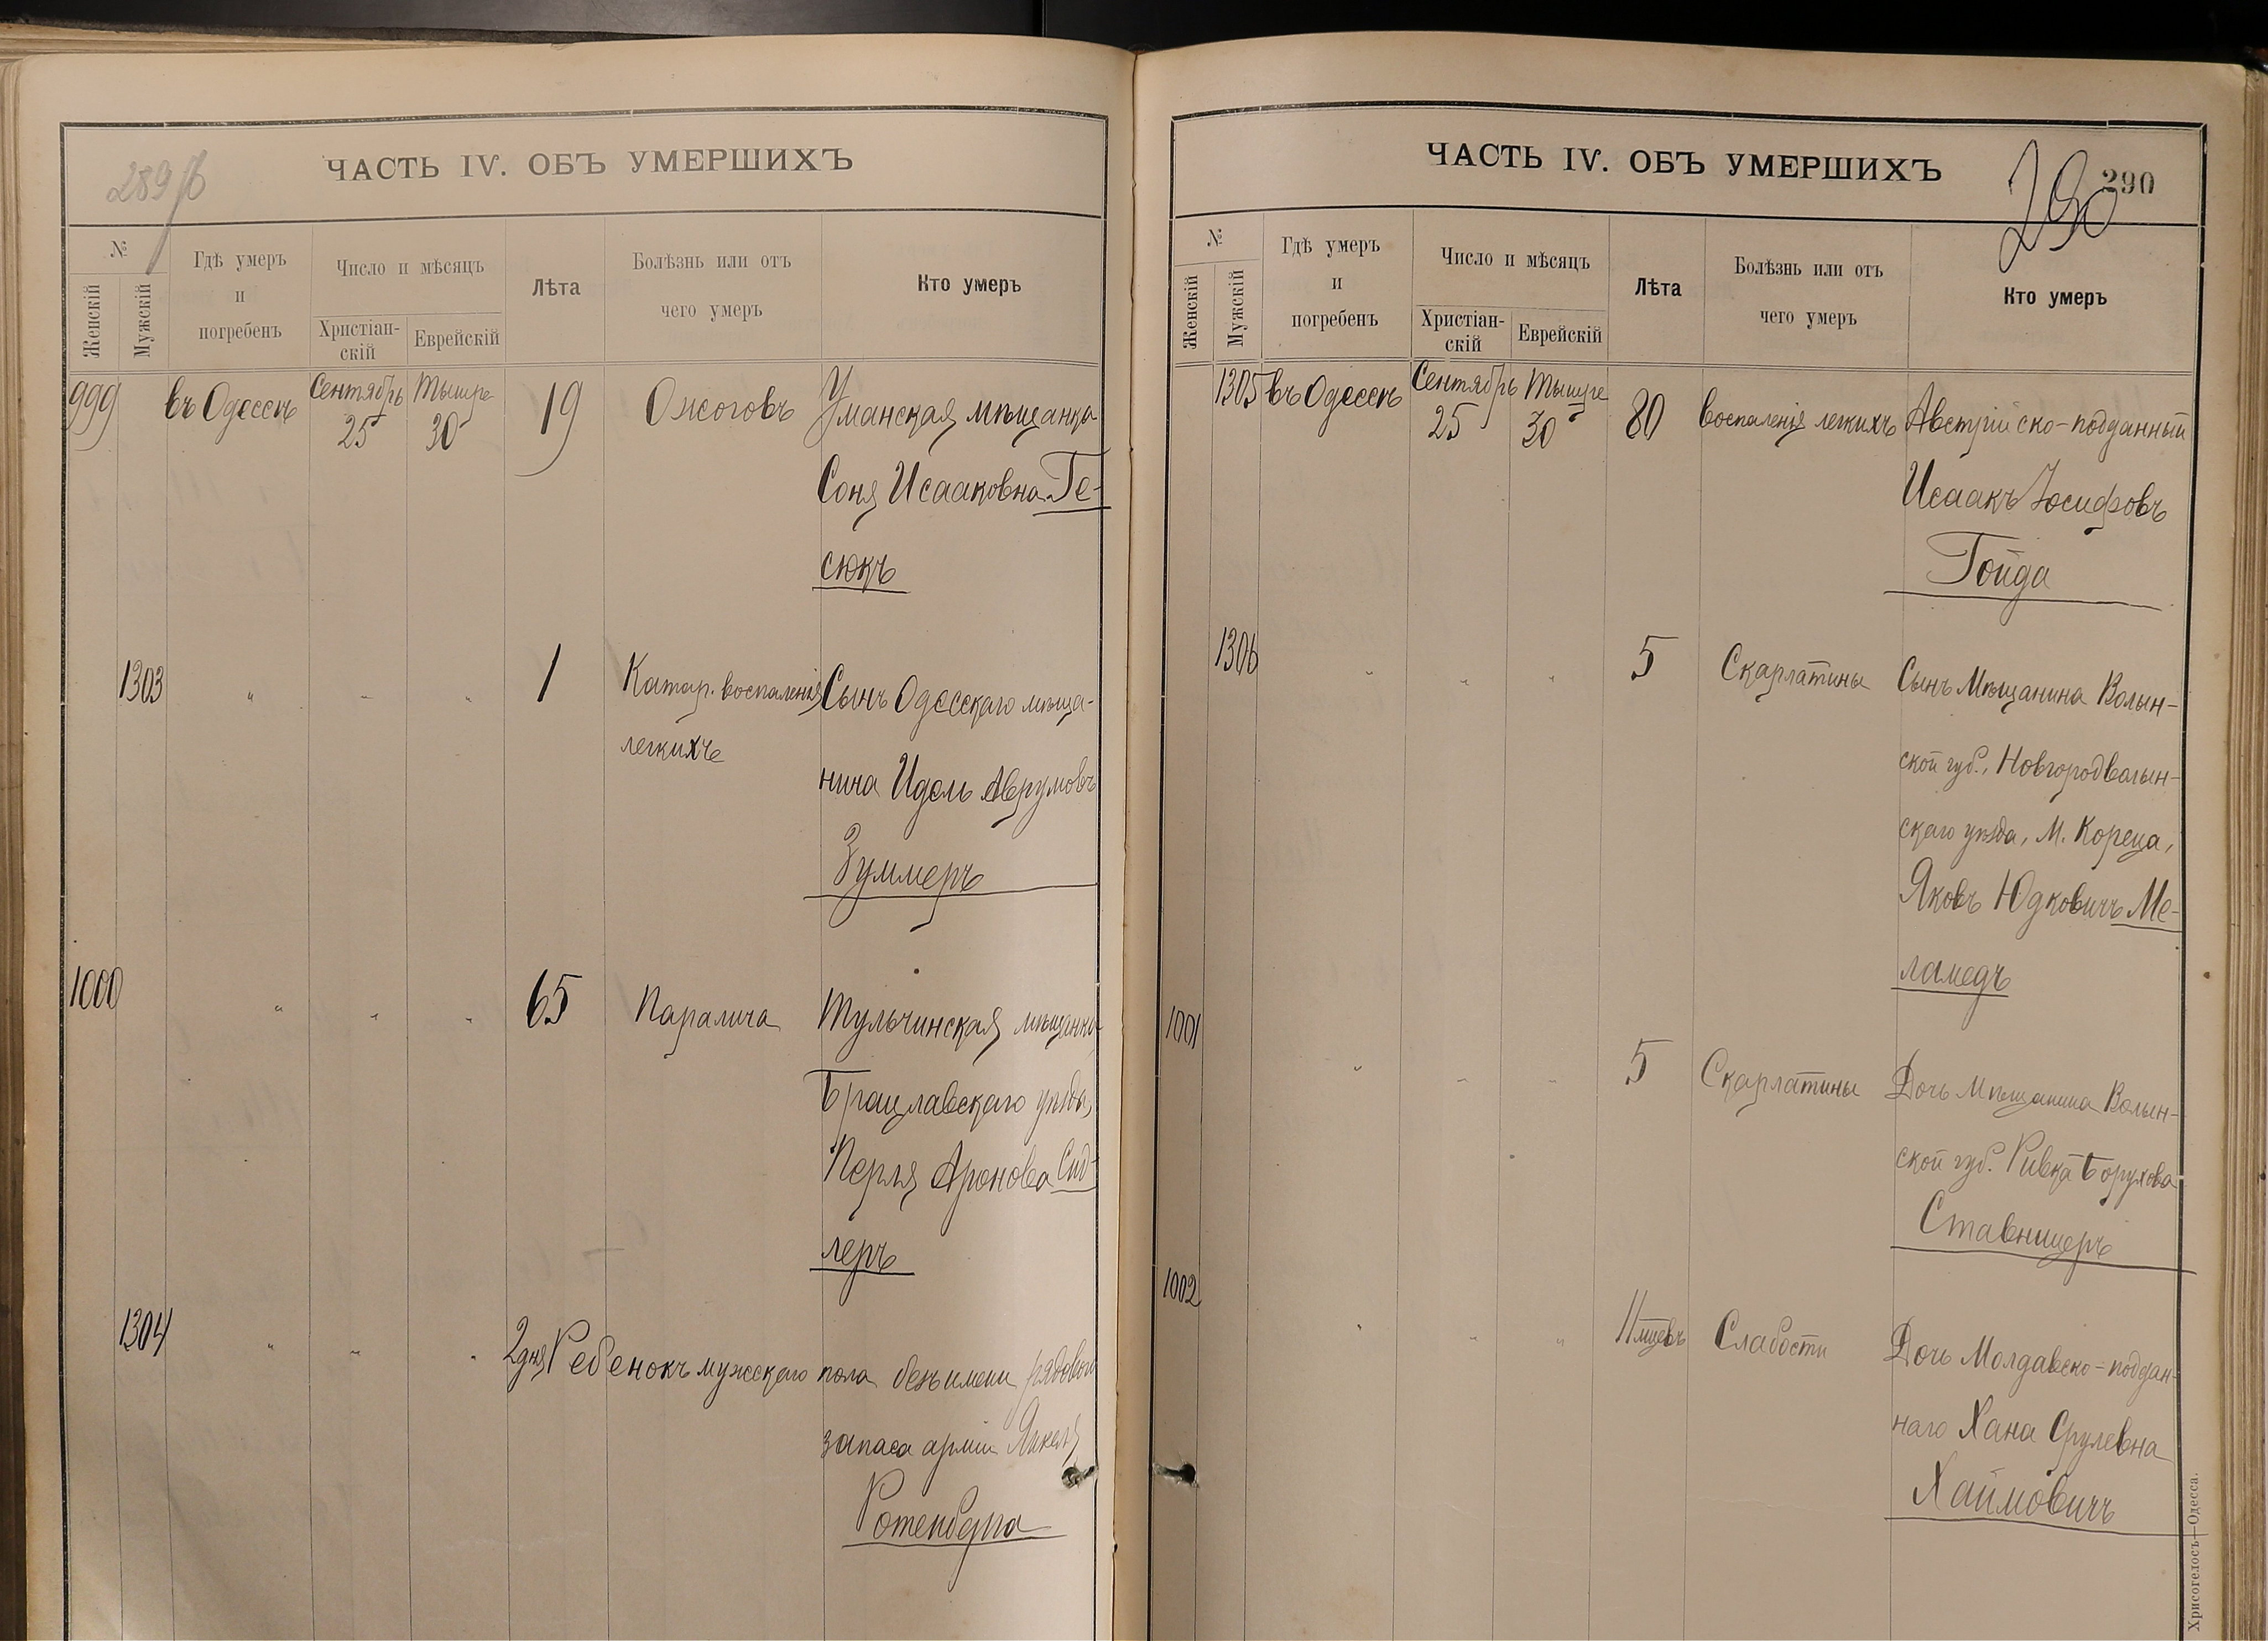 289 об
ЧАСТЬ IV. ОБЪ УМЕРШИХЪ
№
Женскій
Мужскій
Гдѣ умеръ
и
погребенъ
Число и мѣсяцъ
Христіан-
скій
Еврейскій
Лѣта
Болѣзнь или отъ
чего умеръ
Кто умеръ
999 въ Одессѣ Сентябрь 25 Тышре 30 19 Ожоговъ Уманская мѣщанка
Соня Исааковна Ге-
сюкъ
1303 " " " 1 Катар. воспаленія Сынъ Одесскаго мѣща-
легкихъ
нина Идель Аврумовъ
Зуммеръ
1000 " " " 65 Паралича Тульчинская мѣщанка
Брацлавскаго уѣзда,
Перля Аронова Сид-
леръ
1304 " " " 2 дня Ребенокъ мужскаго пола безъ имени рядового
запаса арміи Янкеля
Ротенберга
ЧАСТЬ IV. ОБЪ УМЕРШИХЪ
290
290
№
Женскій
Мужскій
Гдѣ умеръ
и
погребенъ
Число и мѣсяцъ
Христіан-
скій
Еврейскій
Лѣта
Болѣзнь или отъ
чего умеръ
Кто умеръ
1305 въ Одессѣ Сентябрь 25 Тышре 30 80 воспаленія легкихъ Австрійско-подданный
Исаакъ Іосифовъ
Гойда
1306 " " " 5 Скарлатины Сынъ Мѣщанина Волын-
ской губ., Новгородволын-
скаго уѣзда, м. Кореца,
Яковъ Юдковичъ Ме-
ламедъ
1001 " " " 5 Скарлатины Дочь Мѣщанина Волын-
ской губ. Ривка Борухова
Ставницеръ
1002 " " " 11 мцевъ Слабости Дочь Молдавско-поддан-
наго Хана Срулевна
Хаймовичъ
Хрисогелосъ—Одесса.